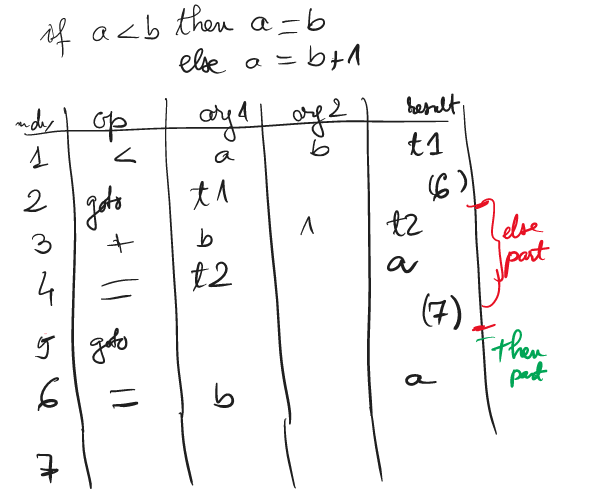 if a < b then a = b
else a = b+1
index op arg1 arg2 result
1 < a b t1
2 goto t1 (6)
3 + b 1 t2
4 = t2 a
5 goto (7)
6 = b a
7
else
part
then
part